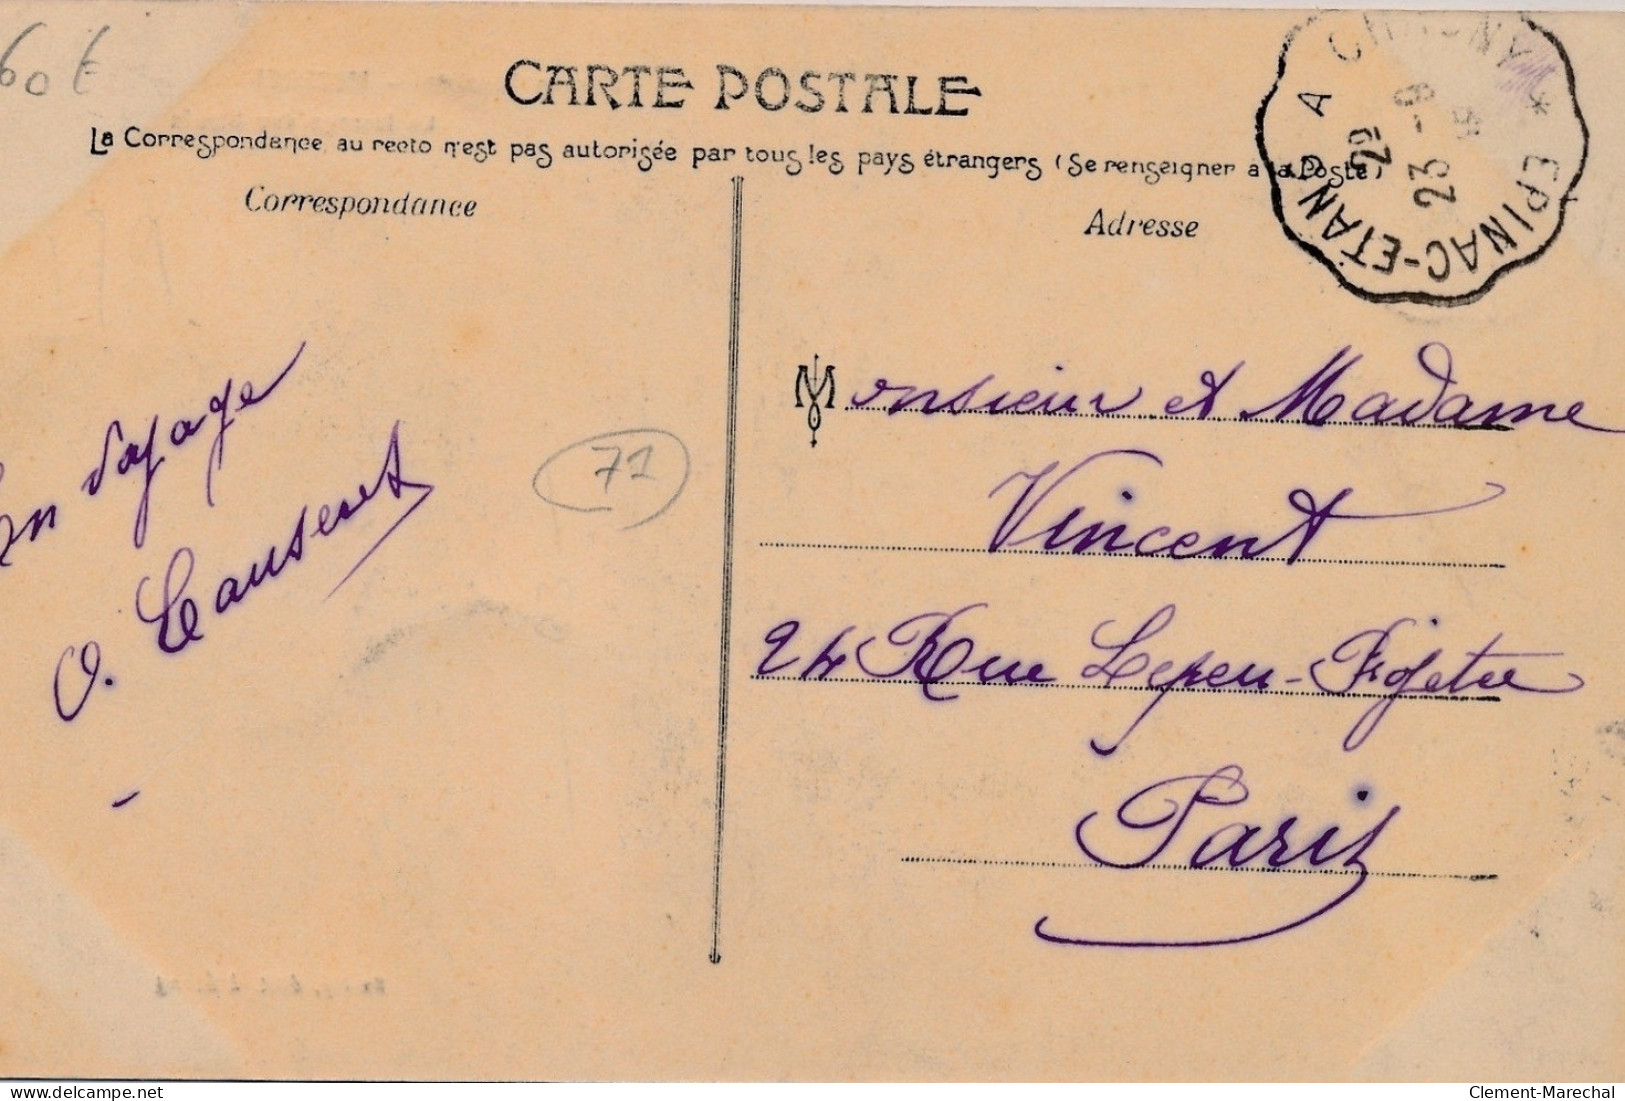 60 €
CARTE POSTALE
La Correspondance au recto n'est pas autorisée par tous les pays étrangers (Se renseigner à la Poste)
Correspondance
Adresse
ÉPINAC-ÉTANG A CHAGNY *
2º
23 - 9
voyage
71
Monsieur et Madame
Vincent
24 Rue Lepeu-Fijetre
Paris
delcampe.net
Clement-Marechal